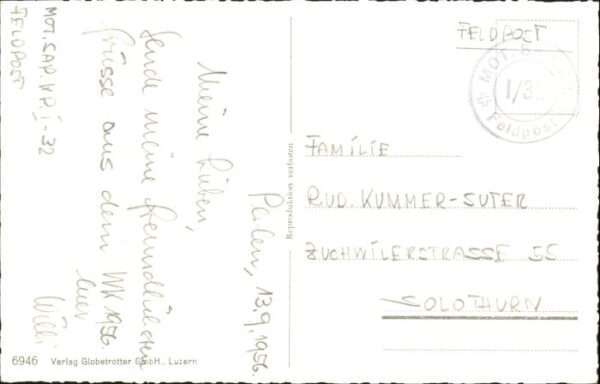 MOT. SAP. KP. I-32
FELDPOST
13.9.1956.
Meine Lieben,
Sende meine freundlichen
Grüsse aus dem WK 1956.
Euer
Willi
6946 Verlag Globetrotter GmbH., Luzern
Reproduktion verboten
FELDPOST
MOT.
I/3
Feldpost
FAMILIE
RUD. KUMMER-SUTER
ZUCHWILERSTRASSE 55
SOLOTHURN